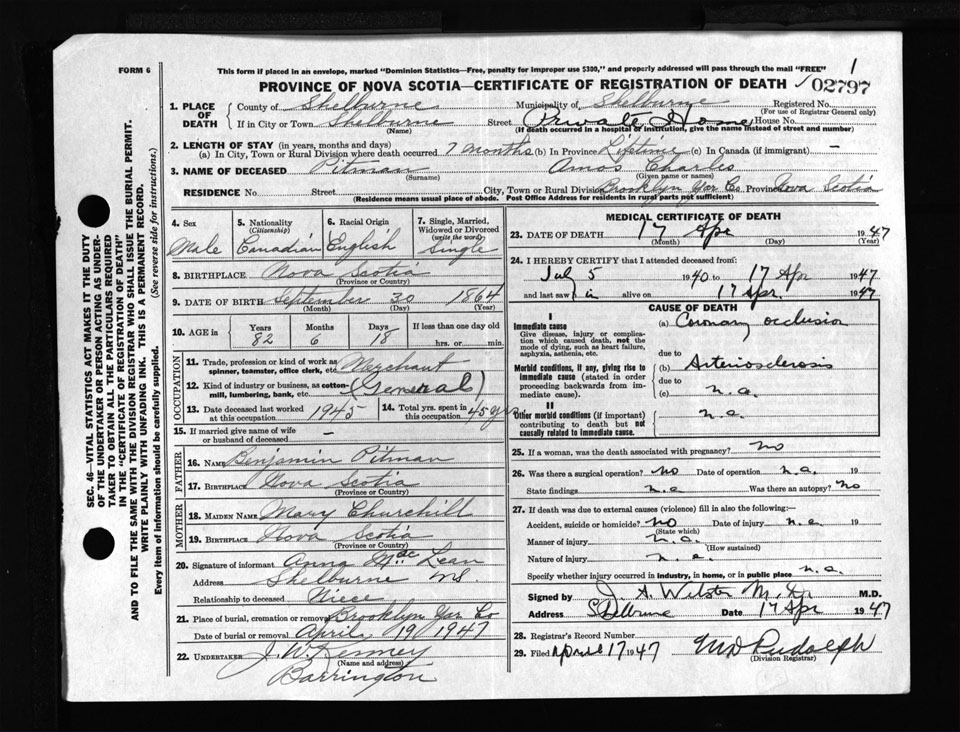 FORM 6
This form if placed in an envelope, marked "Dominion Statistics—Free, penalty for improper use $300," and properly addressed will pass through the mail "FREE"
PROVINCE OF NOVA SCOTIA—CERTIFICATE OF REGISTRATION OF DEATH
1
02797
1. PLACE OF DEATH County of Shelburne Municipality of Shelburne Registered No.
(For use of Registrar General only)
If in City or Town Shelburne Street Private Home House No.
(Name) (If death occurred in a hospital or institution, give the name instead of street and number)
2. LENGTH OF STAY (in years, months and days)
(a) In City, Town or Rural Division where death occurred 7 months (b) In Province Lifetime (c) In Canada (if immigrant) —
3. NAME OF DECEASED Pitman Amos Charles
(Surname) (Given name or names)
RESIDENCE No. Street City, Town or Rural Division Brooklyn Yar Co Province Nova Scotia
(Residence means usual place of abode. Post Office Address for residents in rural parts not sufficient)
4. Sex Male
5. Nationality (Citizenship) Canadian
6. Racial Origin English
7. Single, Married, Widowed or Divorced (write the word) Single
8. BIRTHPLACE Nova Scotia
(Province or Country)
9. DATE OF BIRTH September 30 1864
(Month) (Day) (Year)
10. AGE in Years Months Days If less than one day old
82 6 18 hrs. or min.
OCCUPATION
11. Trade, profession or kind of work as spinner, teamster, office clerk, etc. Merchant
12. Kind of industry or business, as cotton-mill, lumbering, bank, etc. (General)
13. Date deceased last worked at this occupation 1945
14. Total yrs. spent in this occupation 45 yrs
15. If married give name of wife or husband of deceased —
FATHER
16. NAME Benjamin Pitman
17. BIRTHPLACE Nova Scotia
(Province or Country)
MOTHER
18. MAIDEN NAME Mary Churchill
19. BIRTHPLACE Nova Scotia
(Province or Country)
20. Signature of informant Anna Mac Lean
Address Shelburne NS.
Relationship to deceased Niece
21. Place of burial, cremation or removal Brooklyn Yar Co
Date of burial or removal April 19 1947
22. UNDERTAKER J. W. Kenney
(Name and address)
Barrington
MEDICAL CERTIFICATE OF DEATH
23. DATE OF DEATH 17 Apr 1947
(Month) (Day) (Year)
24. I HEREBY CERTIFY that I attended deceased from:
Jul 5 1940 to 17 Apr 1947
and last saw him alive on 17 Apr. 1947
CAUSE OF DEATH
I
Immediate cause (a) Coronary occlusion
Give disease, injury or complication which caused death, not the mode of dying, such as heart failure, asphyxia, asthenia, etc.
due to
Morbid conditions, if any, giving rise to immediate cause (stated in order proceeding backwards from immediate cause). (b) Arteriosclerosis
due to
(c) n.a.
II
Other morbid conditions (if important) contributing to death but not causally related to immediate cause. n.a.
25. If a woman, was the death associated with pregnancy? no
26. Was there a surgical operation? no Date of operation n.a. 19
State findings n.a Was there an autopsy? no
27. If death was due to external causes (violence) fill in also the following:—
Accident, suicide or homicide? no Date of injury n.a. 19
(State which)
Manner of injury n.a.
(How sustained)
Nature of injury n.a.
Specify whether injury occurred in industry, in home, or in public place n.a.
Signed by M.D.
Address Shelburne Date 17 Apr 1947
28. Registrar's Record Number
29. Filed April 17 1947 Rudolph
(Division Registrar)
SEC. 46—VITAL STATISTICS ACT MAKES IT THE DUTY
OF THE UNDERTAKER OR PERSON ACTING AS UNDER-
TAKER TO OBTAIN ALL THE PARTICULARS REQUIRED
IN THE "CERTIFICATE OF REGISTRATION OF DEATH"
AND TO FILE THE SAME WITH THE DIVISION REGISTRAR WHO SHALL ISSUE THE BURIAL PERMIT.
WRITE PLAINLY WITH UNFADING INK. THIS IS A PERMANENT RECORD.
Every item of information should be carefully supplied. (See reverse side for instructions.)